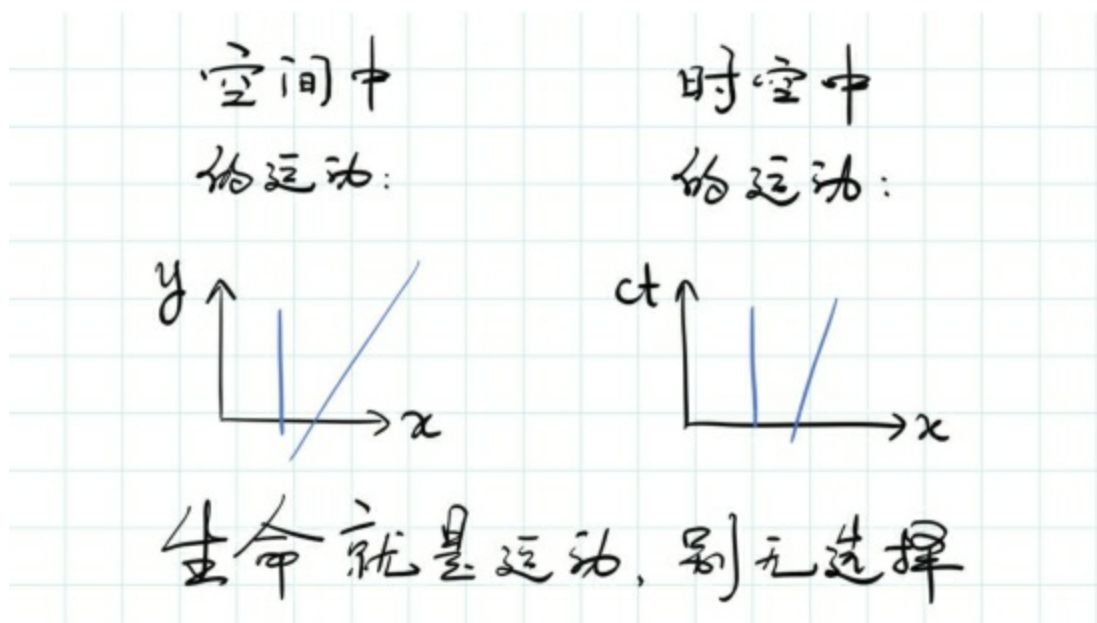 空间中
的运动:
时空中
的运动:
y
x
ct
x
生命就是运动,别无选择